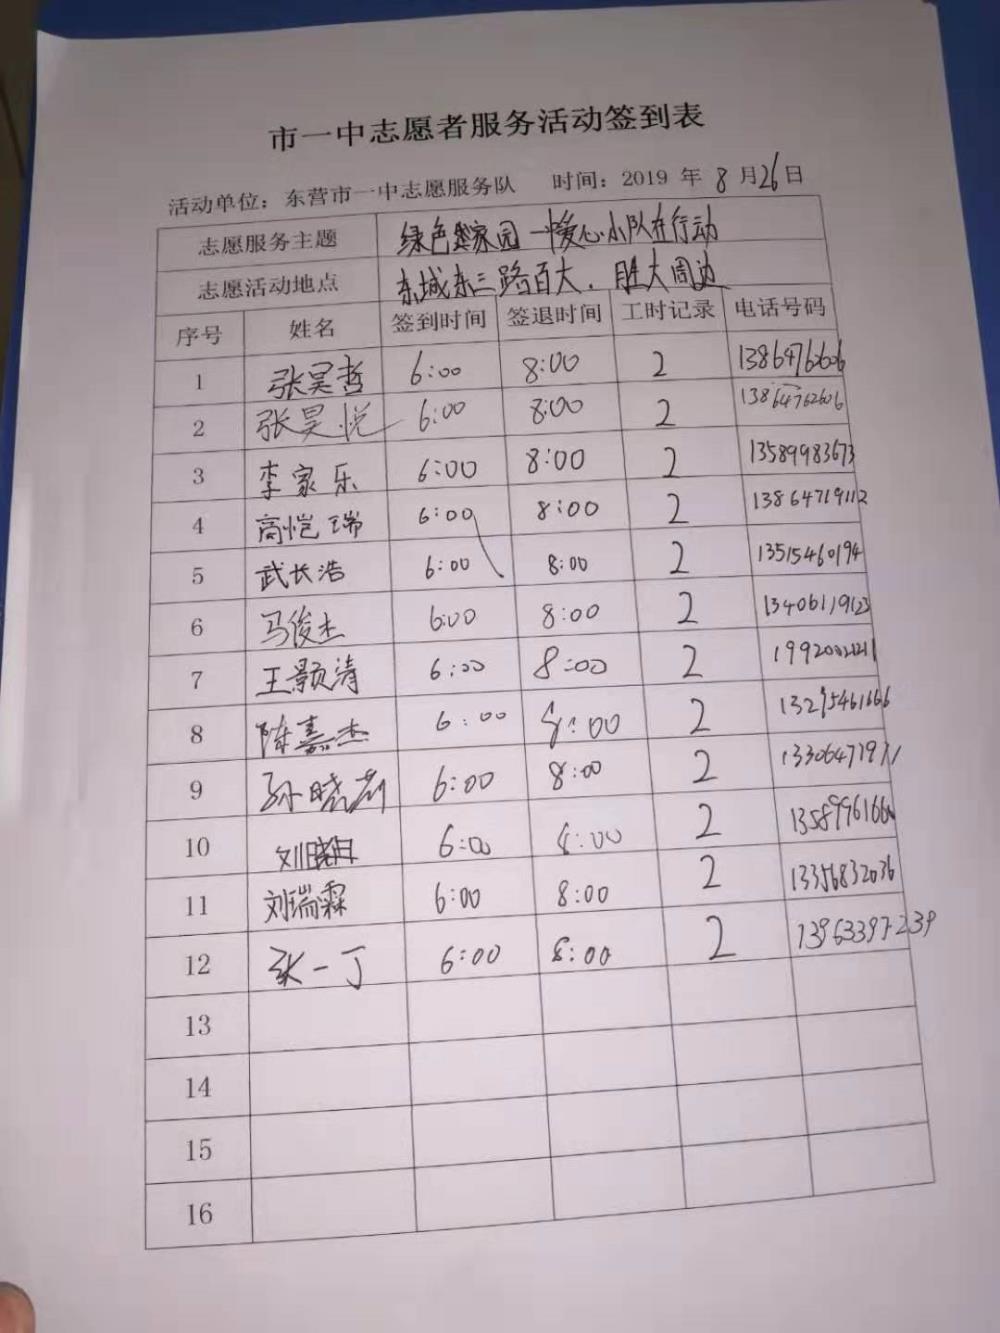 市一中志愿者服务活动签到表
活动单位：东营市一中志愿服务队 时间：2019 年 8 月 26 日
志愿服务主题 绿色家园 一中爱心小队在行动
志愿活动地点 东城东三路百大．胜大周边
序号 姓名 签到时间 签退时间 工时记录 电话号码
1 张昊哲 6:00 8:00 2 13864762606
2 张昊悦 6:00 8:00 2 13864762606
3 李家乐 6:00 8:00 2 13589983673
4 高恺瑞 6:00 8:00 2 13864719112
5 武长浩 6:00 8:00 2 13515460194
6 马俊杰 6:00 8:00 2 13406119123
7 王颢清 6:00 8:00 2
8 陈嘉杰 6:00 8:00 2 13295461666
9 孙晓 6:00 8:00 2
10 刘 6:00 8:00 2
11 刘瑞霖 6:00 8:00 2 13356832036
12 张一丁 6:00 8:00 2 13963397239
13
14
15
16